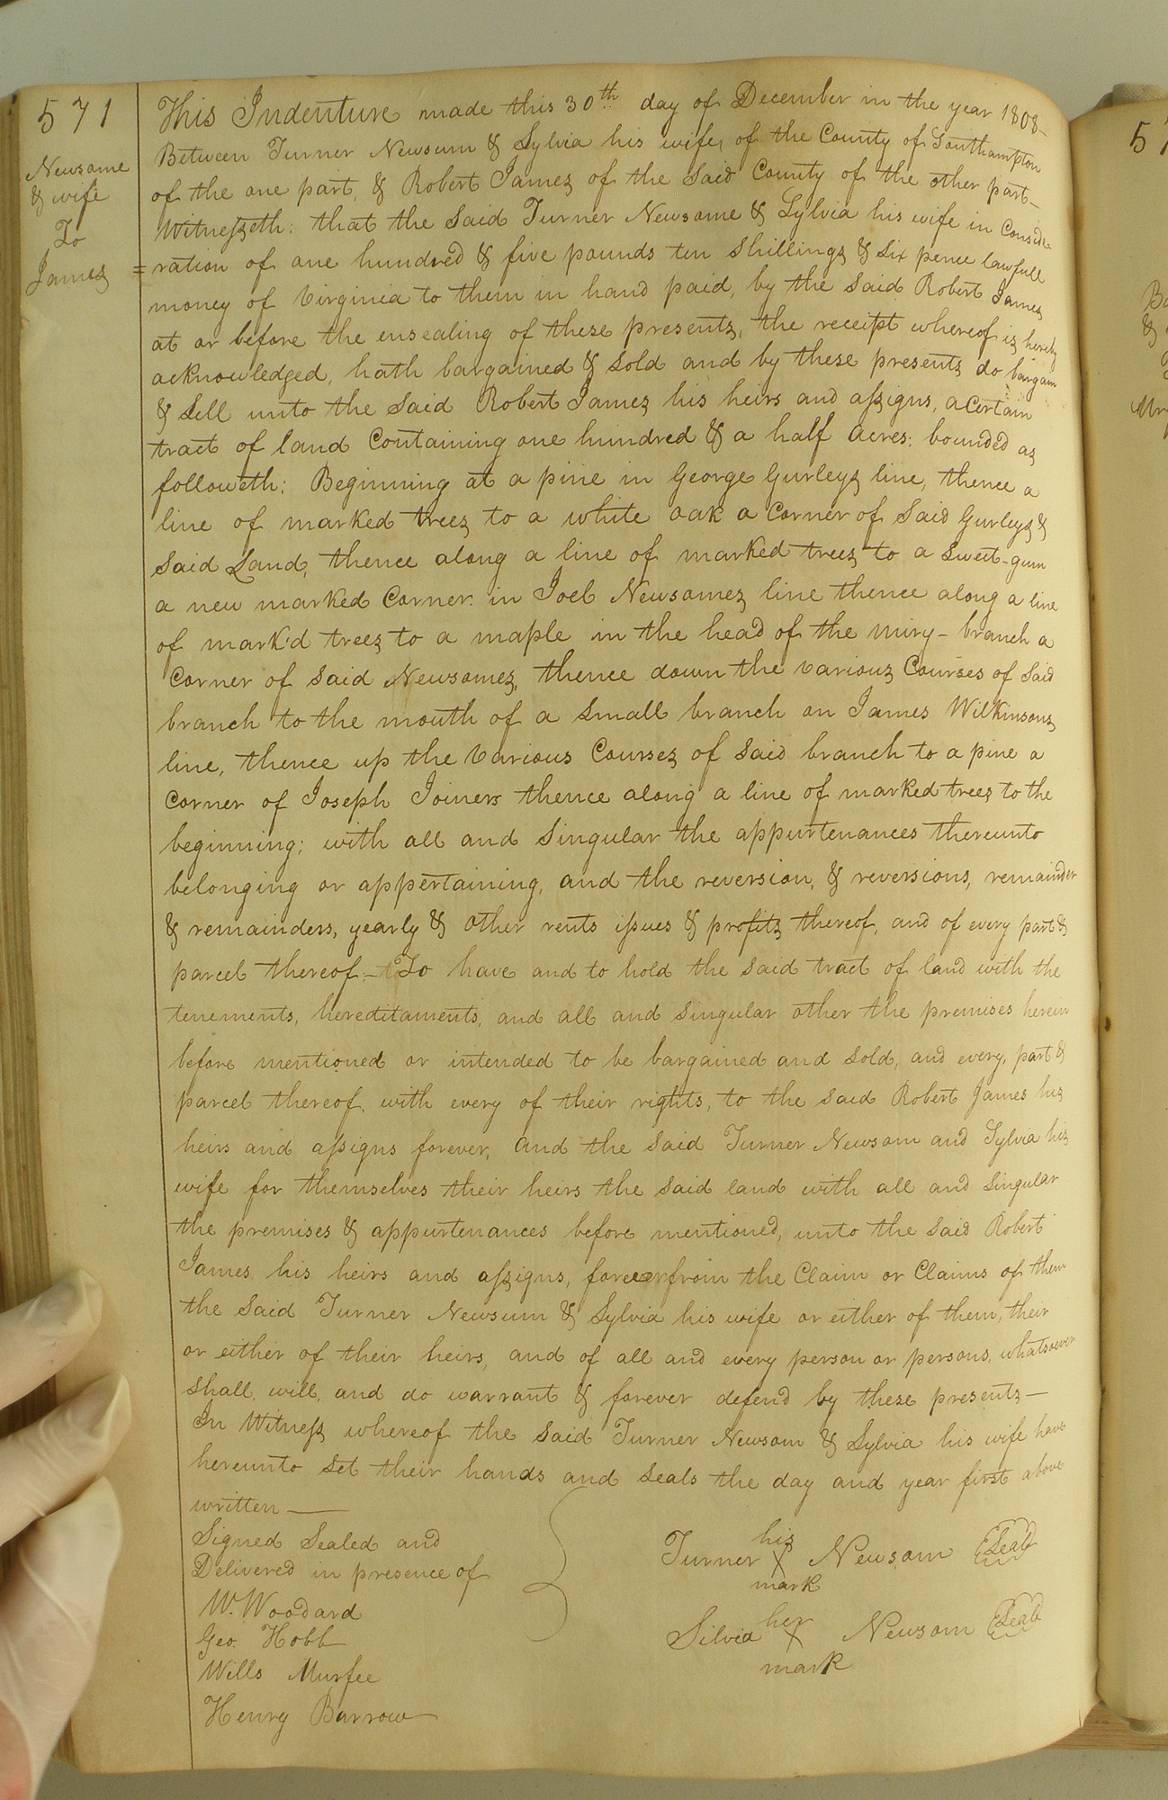 571
Newsome
& wife
To
James
This Indenture made this 30th day of December in the year 1808
Between Turner Newsum & Sylvia his wife, of the County of Southampton
of the one part, & Robert James of the Said County of the other part
Witnesseth: that the Said Turner Newsome & Sylvia his wife in Conside
=ration of one hundred & five pounds ten Shillings & Six pence lawfull
money of Virginia to them in hand paid, by the Said Robert James
at or before the ensealing of these presents, the receipt whereof is hereby
acknowledged, hath bargained & Sold and by these presents do bargain
& Sell unto the Said Robert James his heirs and assigns, a Certain
tract of land Containing one hundred & a half acres: bounded as
followeth: Beginning at a pine in George Gurleys line, thence a
line of marked trees to a white oak a Corner of Said Gurleys &
Said Land, thence along a line of marked trees to a Sweet-gum
a new marked Corner in Joel Newsomes line thence along a line
of mark'd trees to a maple in the head of the miry-branch a
Corner of Said Newsomes, thence down the various Courses of Said
branch to the mouth of a Small branch on James Wilkinsons
line, thence up the various Courses of Said branch to a pine a
Corner of Joseph Joiners thence along a line of marked trees to the
beginning; with all and Singular the appurtenances thereunto
belonging or appertaining, and the reversion, & reversions, remainder
& remainders, yearly & other rents issues & profits thereof, and of every part &
parcel thereof. To have and to hold the Said tract of land with the
tenements, hereditaments, and all and Singular other the premises herein
before mentioned or intended to be bargained and Sold, and every, part &
parcel thereof, with every of their rights, to the Said Robert James his
heirs and assigns forever, And the Said Turner Newsom and Sylvia his
wife for themselves their heirs the Said land with all and Singular
the premises & appurtenances before mentioned, unto the Said Robert
James his heirs and assigns, forever from the Claim or Claims of them
the Said Turner Newsum & Sylvia his wife or either of them, their
or either of their heirs, and of all and every person or persons, whatsoever
Shall will, and do warrant & forever defend by these presents—
In Witness whereof the Said Turner Newsom & Sylvia his wife have
hereunto Set their hands and Seals the day and year first above
written—
Signed Sealed and
Delivered in presence of
W. Woodard
Geo. Hobb
Wills Murfee
Henry Barrow
his
Turner X Newsom Seal
mark
her
Silvia X Newsom Seal
mark